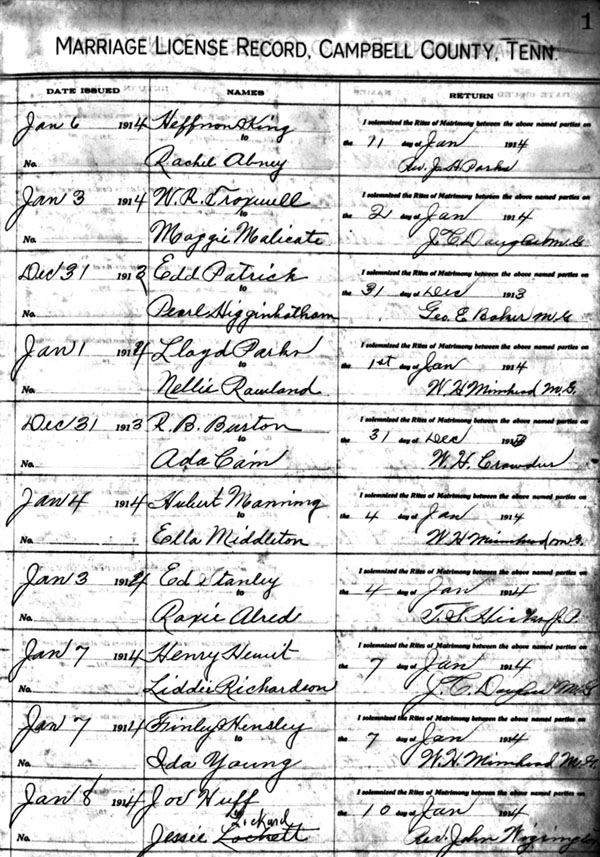 1
MARRIAGE LICENSE RECORD, CAMPBELL COUNTY, TENN.
DATE ISSUED NAMES RETURN
Jan 6 1914 Heffron King
to
Rachel Abney
No.
I solemnized the Rites of Matrimony between the above named parties on
the 11 day of Jan 1914
Rev. J. H. Parks
Jan 3 1914 W. R. Troxwell
to
Maggie Malicate
No.
I solemnized the Rites of Matrimony between the above named parties on
the 2 day of Jan 1914
J. C. M.G.
Dec 31 1913 Edd Patrick
to
Pearl Higginbotham
No.
I solemnized the Rites of Matrimony between the above named parties on
the 31 day of Dec 1913
Geo. E. Baker M G
Jan 1 1914 Lloyd Parks
to
Nellie Rawland
No.
I solemnized the Rites of Matrimony between the above named parties on
the 1st day of Jan 1914
W H M.G.
Dec 31 1913 R. B. Burton
to
Ada Cain
No.
I solemnized the Rites of Matrimony between the above named parties on
the 31 day of Dec 1913
W. H. Crowder
Jan 4 1914 Hubert Manning
to
Ella Middleton
No.
I solemnized the Rites of Matrimony between the above named parties on
the 4 day of Jan 1914
W H M.G.
Jan 3 1914 Ed Stanley
to
Roxie Alred
No.
I solemnized the Rites of Matrimony between the above named parties on
the 4 day of Jan 1914
T. S.
Jan 7 1914 Henry Hewit
to
Liddie Richardson
No.
I solemnized the Rites of Matrimony between the above named parties on
the 7 day of Jan 1914
J. C. M.G.
Jan 7 1914 Finley Hensley
to
Ida Young
No.
I solemnized the Rites of Matrimony between the above named parties on
the 7 day of Jan 1914
W. H. M.G.
Jan 8 1914 Joe Huff
to
Lickard
Jessie Lockett
No.
I solemnized the Rites of Matrimony between the above named parties on
the 10 day of Jan 1914
Rev. John